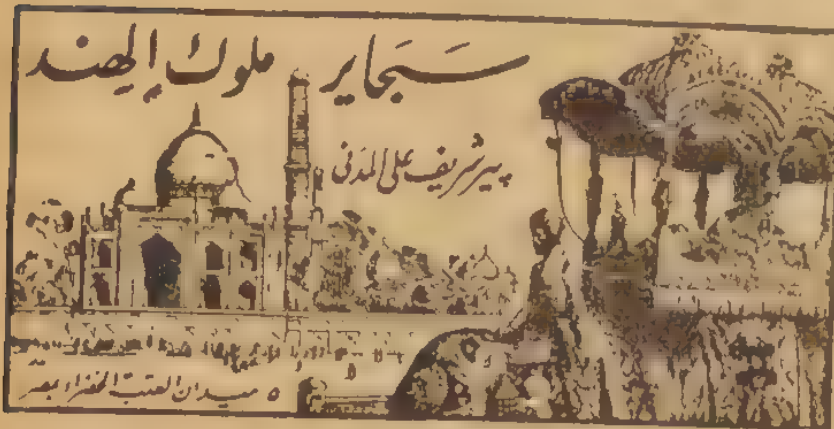 سجاير ملوك الهند
پير شريف على المدنى
٥ ميدان العتبة الخضراء بمصر